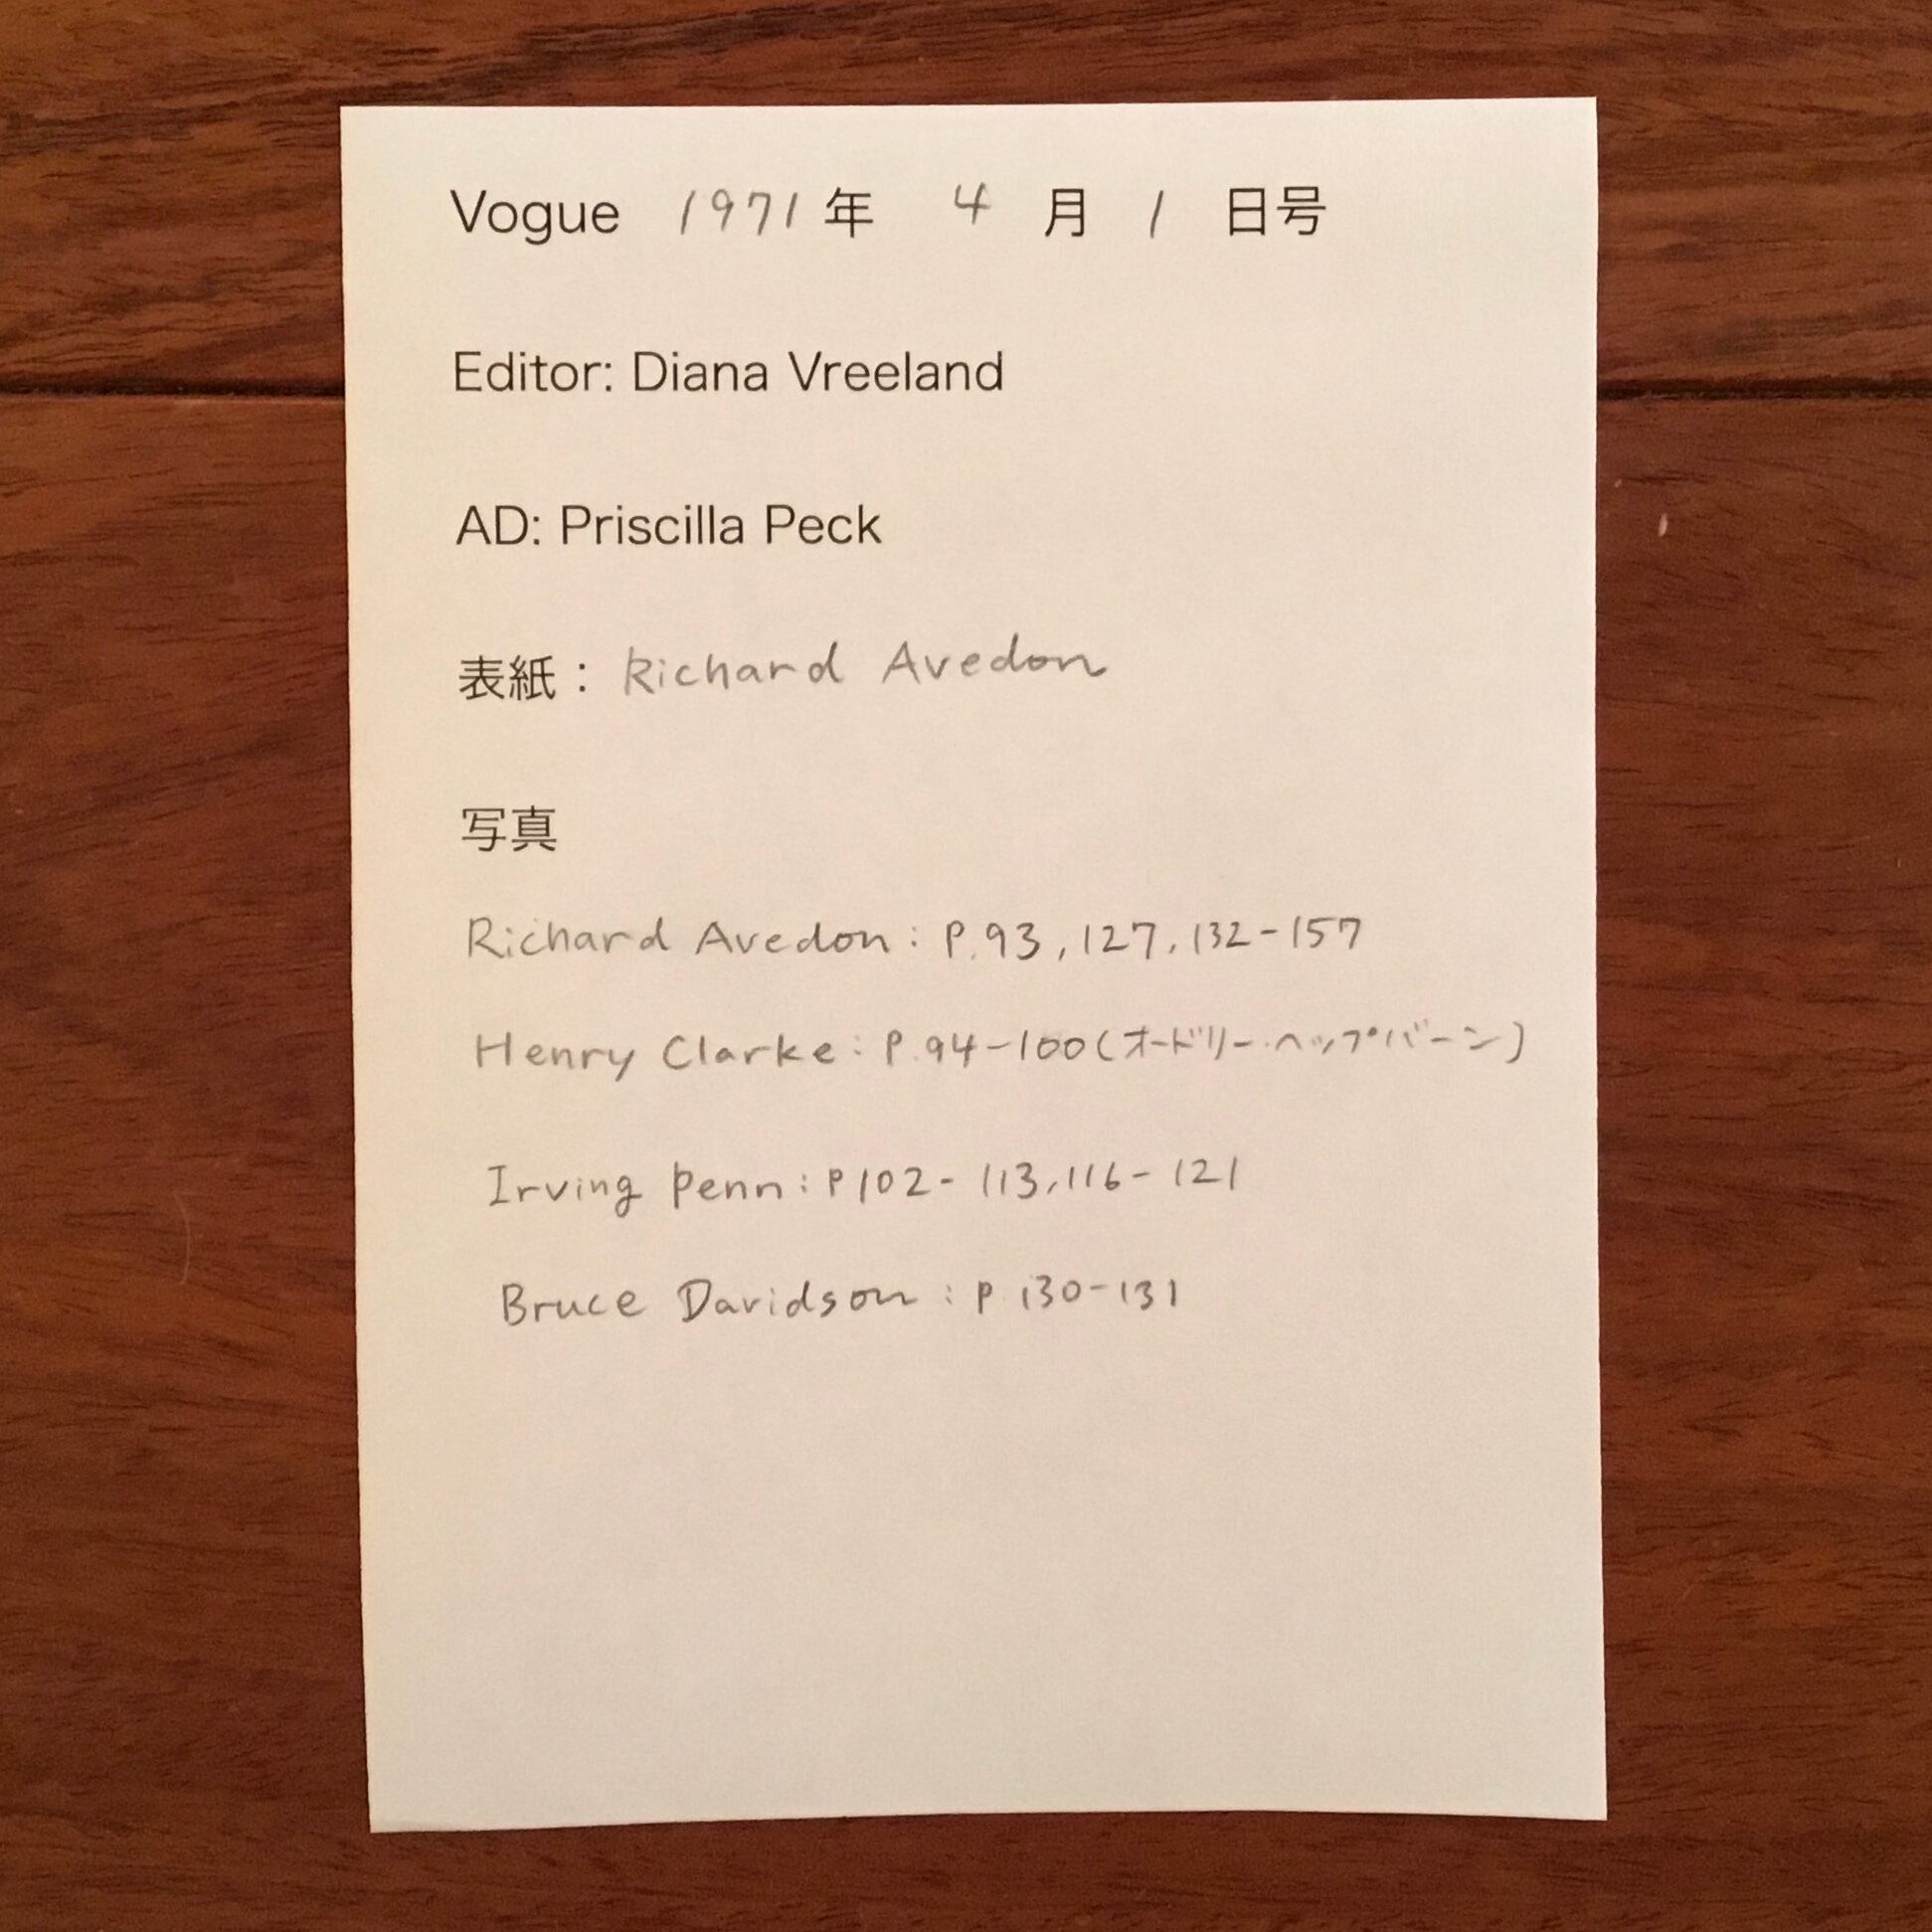 Vogue 1971 年 4 月 1 日号
Editor: Diana Vreeland
AD: Priscilla Peck
表紙： Richard Avedon
写真
Richard Avedon : P.93, 127, 132-157
Henry Clarke : P.94-100(オードリー・ヘップバーン)
Irving Penn : P102- 113, 116- 121
Bruce Davidson : P 130-131